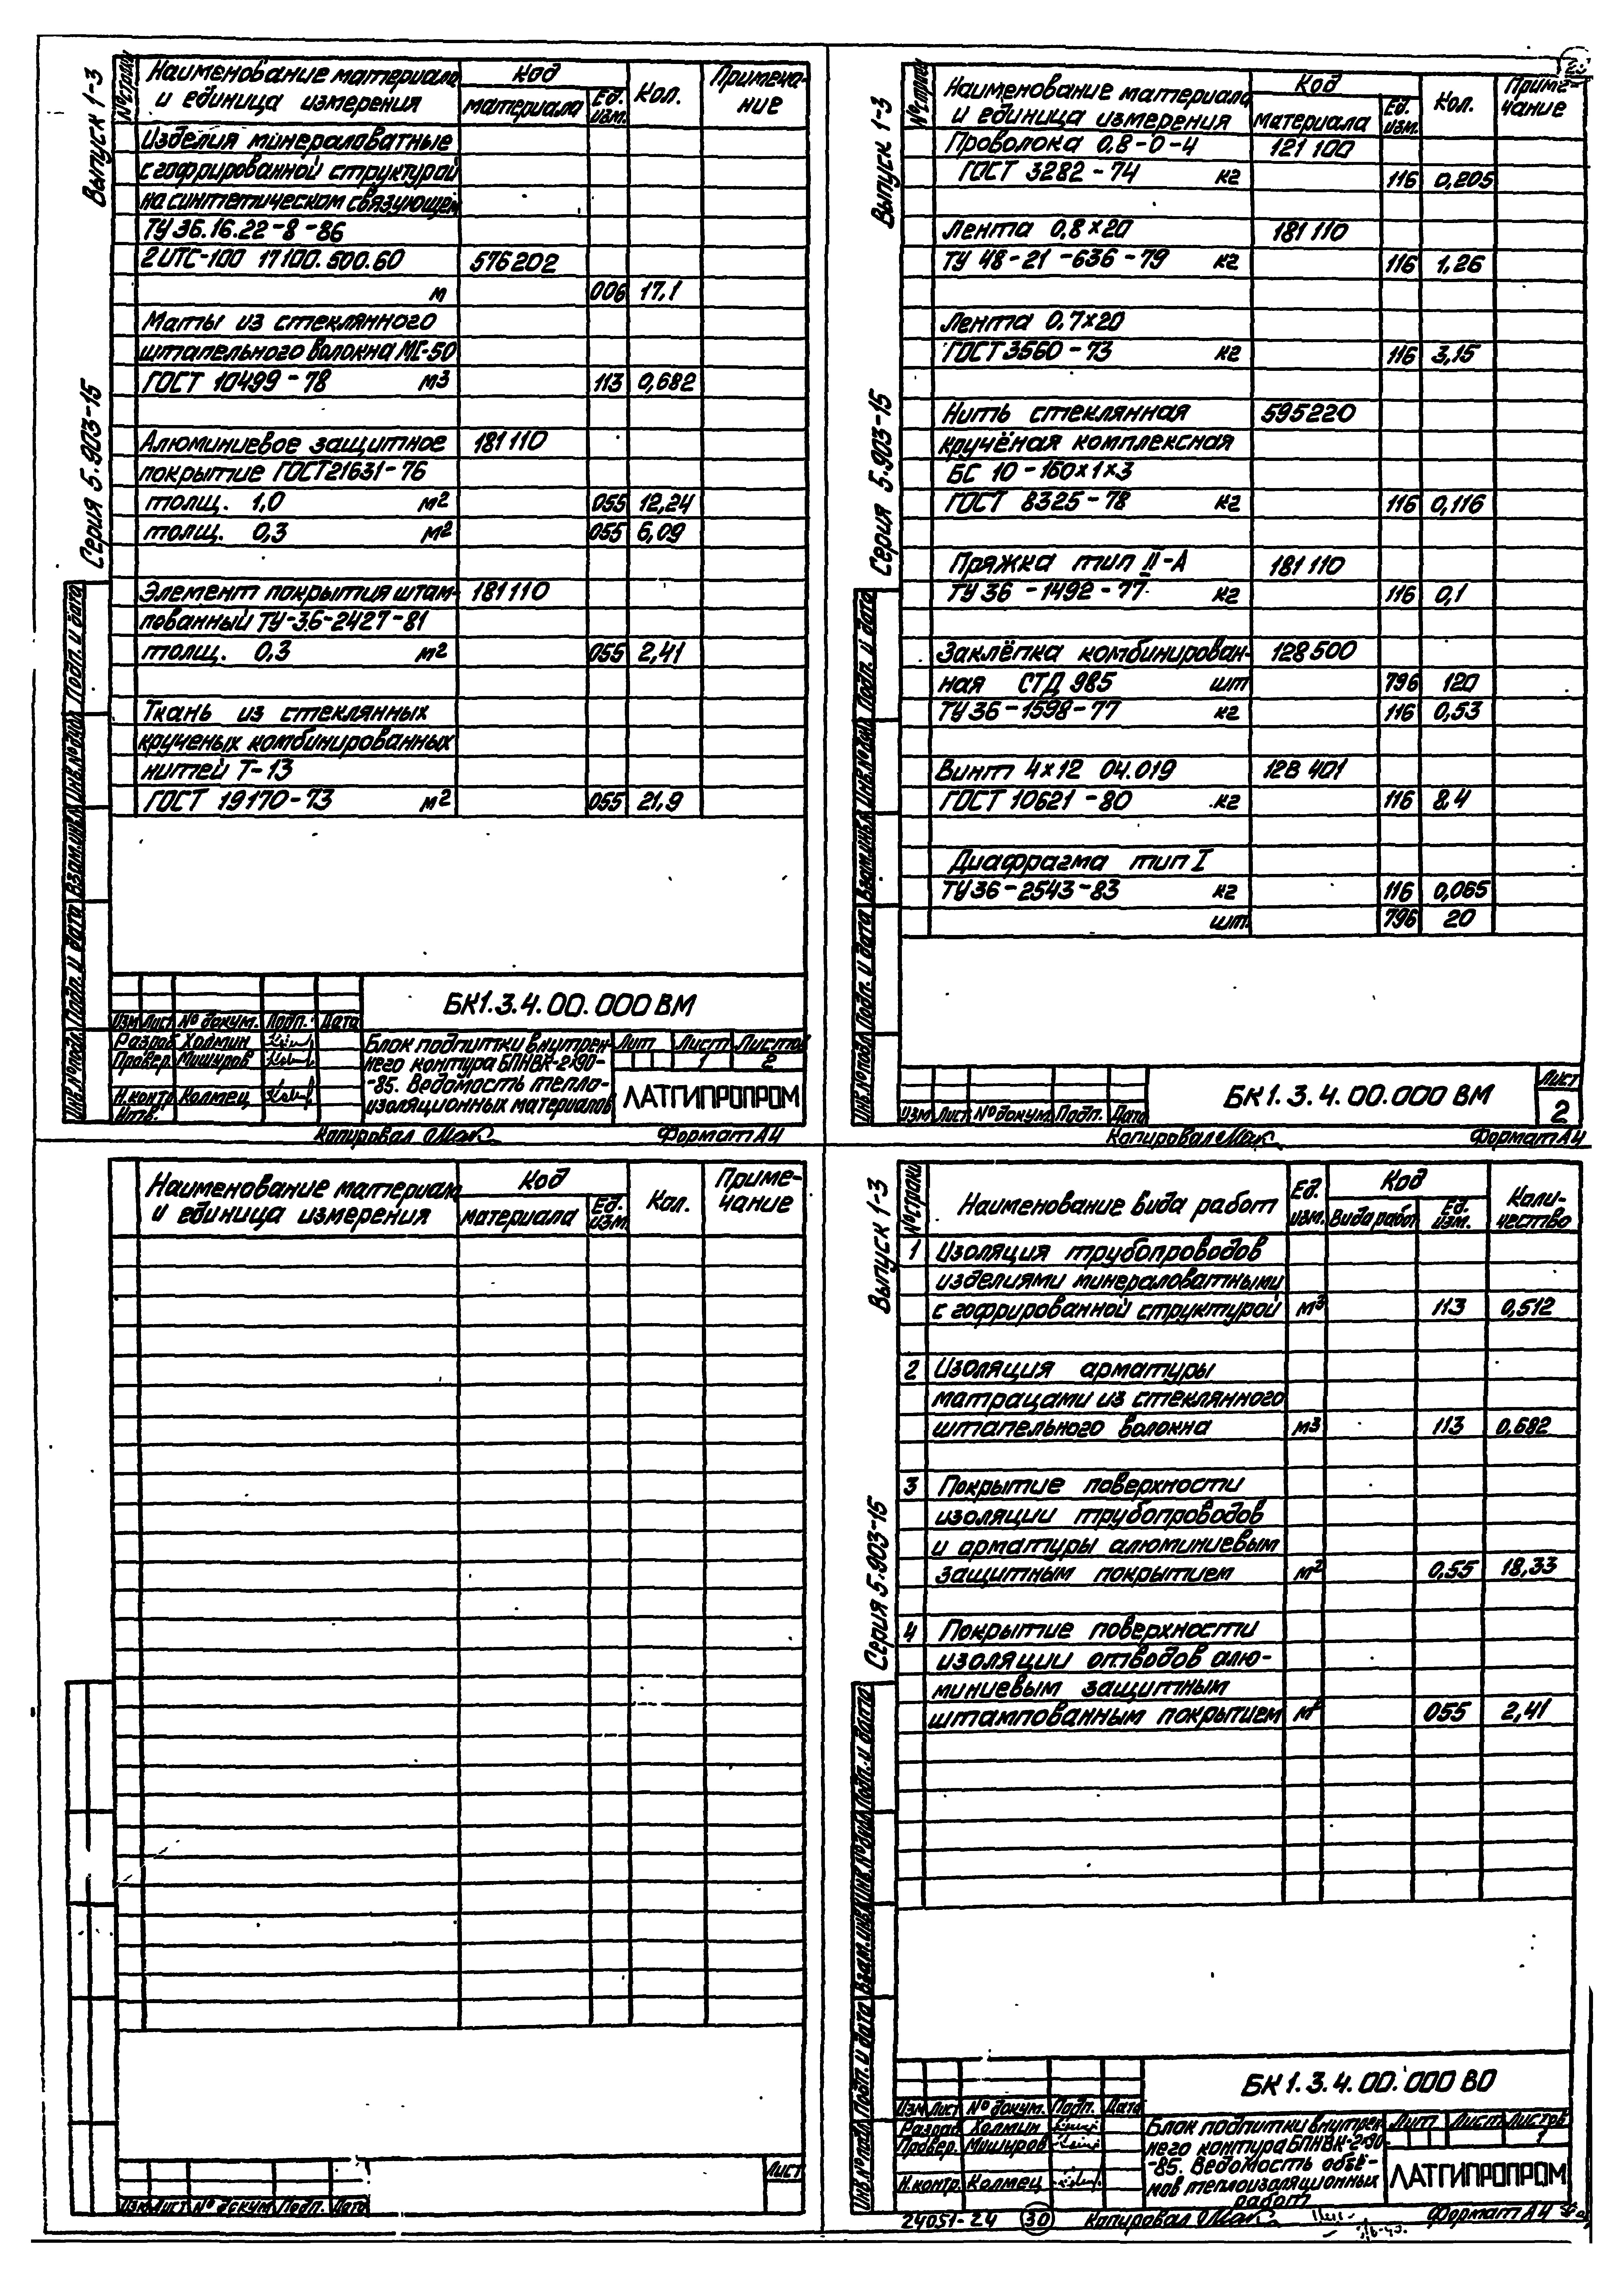 Выпуск 1-3
Серия 5.903-15
№ строки Наименование материала и единица измерения Код материала Ед. изм. Кол. Примеча-ние
Изделия минераловатные
с гофрированной структурой
на синтетическом связующем
ТУ 36.16.22-8-86
2ИТС-100 17100.500.60 576202
м 006 17,1
Маты из стеклянного
штапельного волокна МС-50
ГОСТ 10499-78 м3 113 0,682
Алюминиевое защитное 181110
покрытие ГОСТ21631-76
толщ. 1,0 м2 055 12,24
толщ. 0,3 м2 055 6,09
Элемент покрытия штам- 181110
пованный ТУ-36-2427-81
толщ. 0,3 м2 055 2,41
Ткань из стеклянных
крученых комбинированных
нитей Т-13
ГОСТ 19170-73 м2 055 21,9
Инв.№подл. Подп. и дата Взам.инв.№ Инв.№дубл. Подп. и дата
БК1.3.4.00.000 ВМ
Изм Лист № докум. Подп. Дата
Разраб Холмин
Провер. Мишуров
Н.контр. Колмец
Утв.
Блок подпитки внутрен-
него контура БПНВК-2×90-
-85. Ведомость тепло-
изоляционных материалов
Лит Лист Листов
1 2
ЛАТГИПРОПРОМ
Копировал
Формат А4
Выпуск 1-3
Серия 5.903-15
№ строки Наименование материала и единица измерения Код материала Ед. изм. Кол. Приме-чание
Проволока 0,8-0-4 121 100
ГОСТ 3282-74 кг 116 0,205
Лента 0,8×20 181 110
ТУ 48-21-636-79 кг 116 1,26
Лента 0,7×20
ГОСТ3560-73 кг 116 3,15
Нить стеклянная 595220
кручёная комплексная
БС 10-160×1×3
ГОСТ 8325-78 кг 116 0,116
Пряжка тип II-А 181110
ТУ36-1492-77 кг 116 0,1
Заклёпка комбинирован- 128500
ная СТД 985 шт 796 120
ТУ36-1598-77 кг 116 0,53
Винт 4×12 04.019 128 401
ГОСТ 10621-80 кг 116 8,4
Диафрагма тип I
ТУ36-2543-83 кг 116 0,065
шт. 796 20
Инв.№подл. Подп. и дата Взам.инв.№ Инв.№дубл. Подп. и дата
Изм Лист № докум. Подп. Дата
БК1.3.4.00.000 ВМ
Лист
2
Копировал
Формат А4
Наименование материала и единица измерения Код материала Ед. изм. Кол. Приме-чание
Изм Лист № докум Подп. Дата
Лист
Выпуск 1-3
Серия 5.903-15
№ строки Наименование вида работ Ед. изм. Код Вида работ Ед. изм. Коли-чество
1 Изоляция трубопроводов
изделиями минераловатными
с гофрированной структурой м3 113 0,512
2 Изоляция арматуры
матрацами из стеклянного
штапельного волокна м3 113 0,682
3 Покрытие поверхности
изоляции трубопроводов
и арматуры алюминиевым
защитным покрытием м2 0,55 18,33
4 Покрытие поверхности
изоляции отводов алю-
миниевым защитным
штампованным покрытием м2 055 2,41
Инв.№подл. Подп. и дата Взам.инв.№ Инв.№дубл. Подп. и дата
БК 1.3.4.00.000 ВО
Изм Лист № докум. Подп. Дата
Разраб Холмин
Провер. Мишуров
Н.контр. Колмец
Блок подпитки внутрен-
него контура БПНВК-2×90-
-85. Ведомость объе-
мов теплоизоляционных
работ
Лит Лист Листов
1
ЛАТГИПРОПРОМ
24051-24 30 Копировал Формат А4